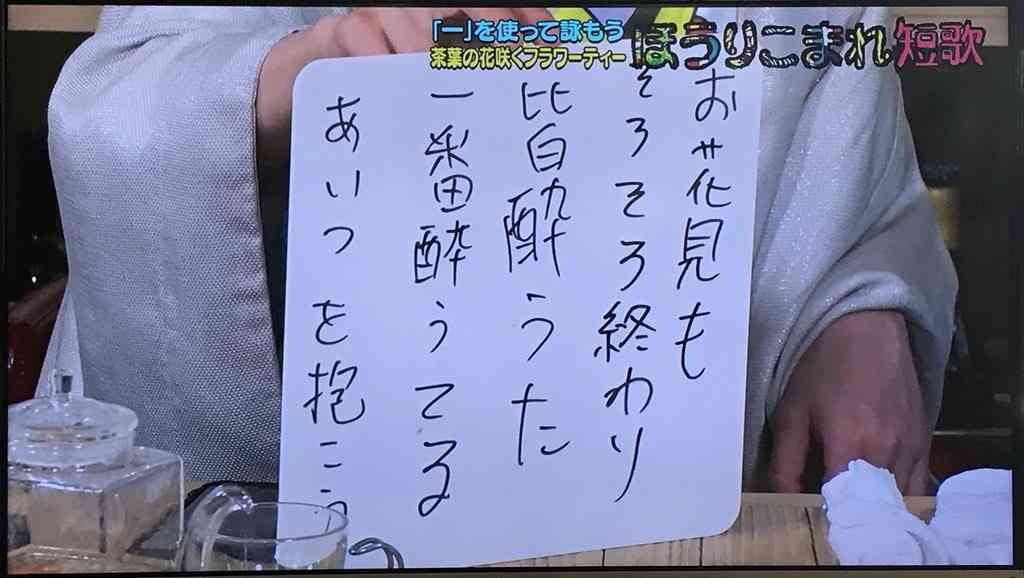 「一」を使って詠もう
茶葉の花咲くフラワーティー
ほうりこまれ短歌
お花見も
そろそろ終わり
皆酔うた
一番酔うてる
あいつを抱こう